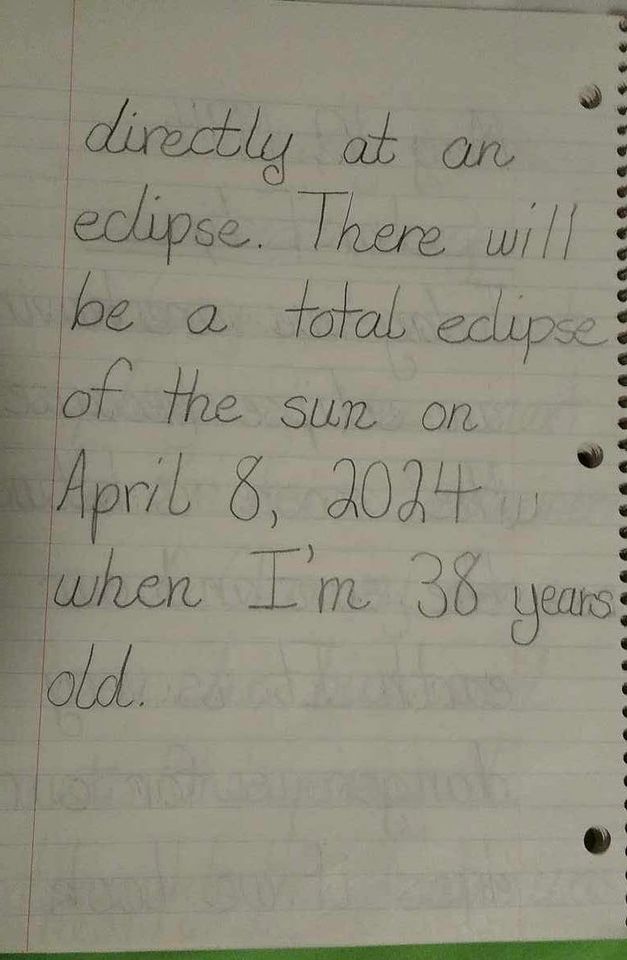 directly at an
eclipse. There will
be a total eclipse
of the sun on
April 8, 2024
when I'm 38 years
old.